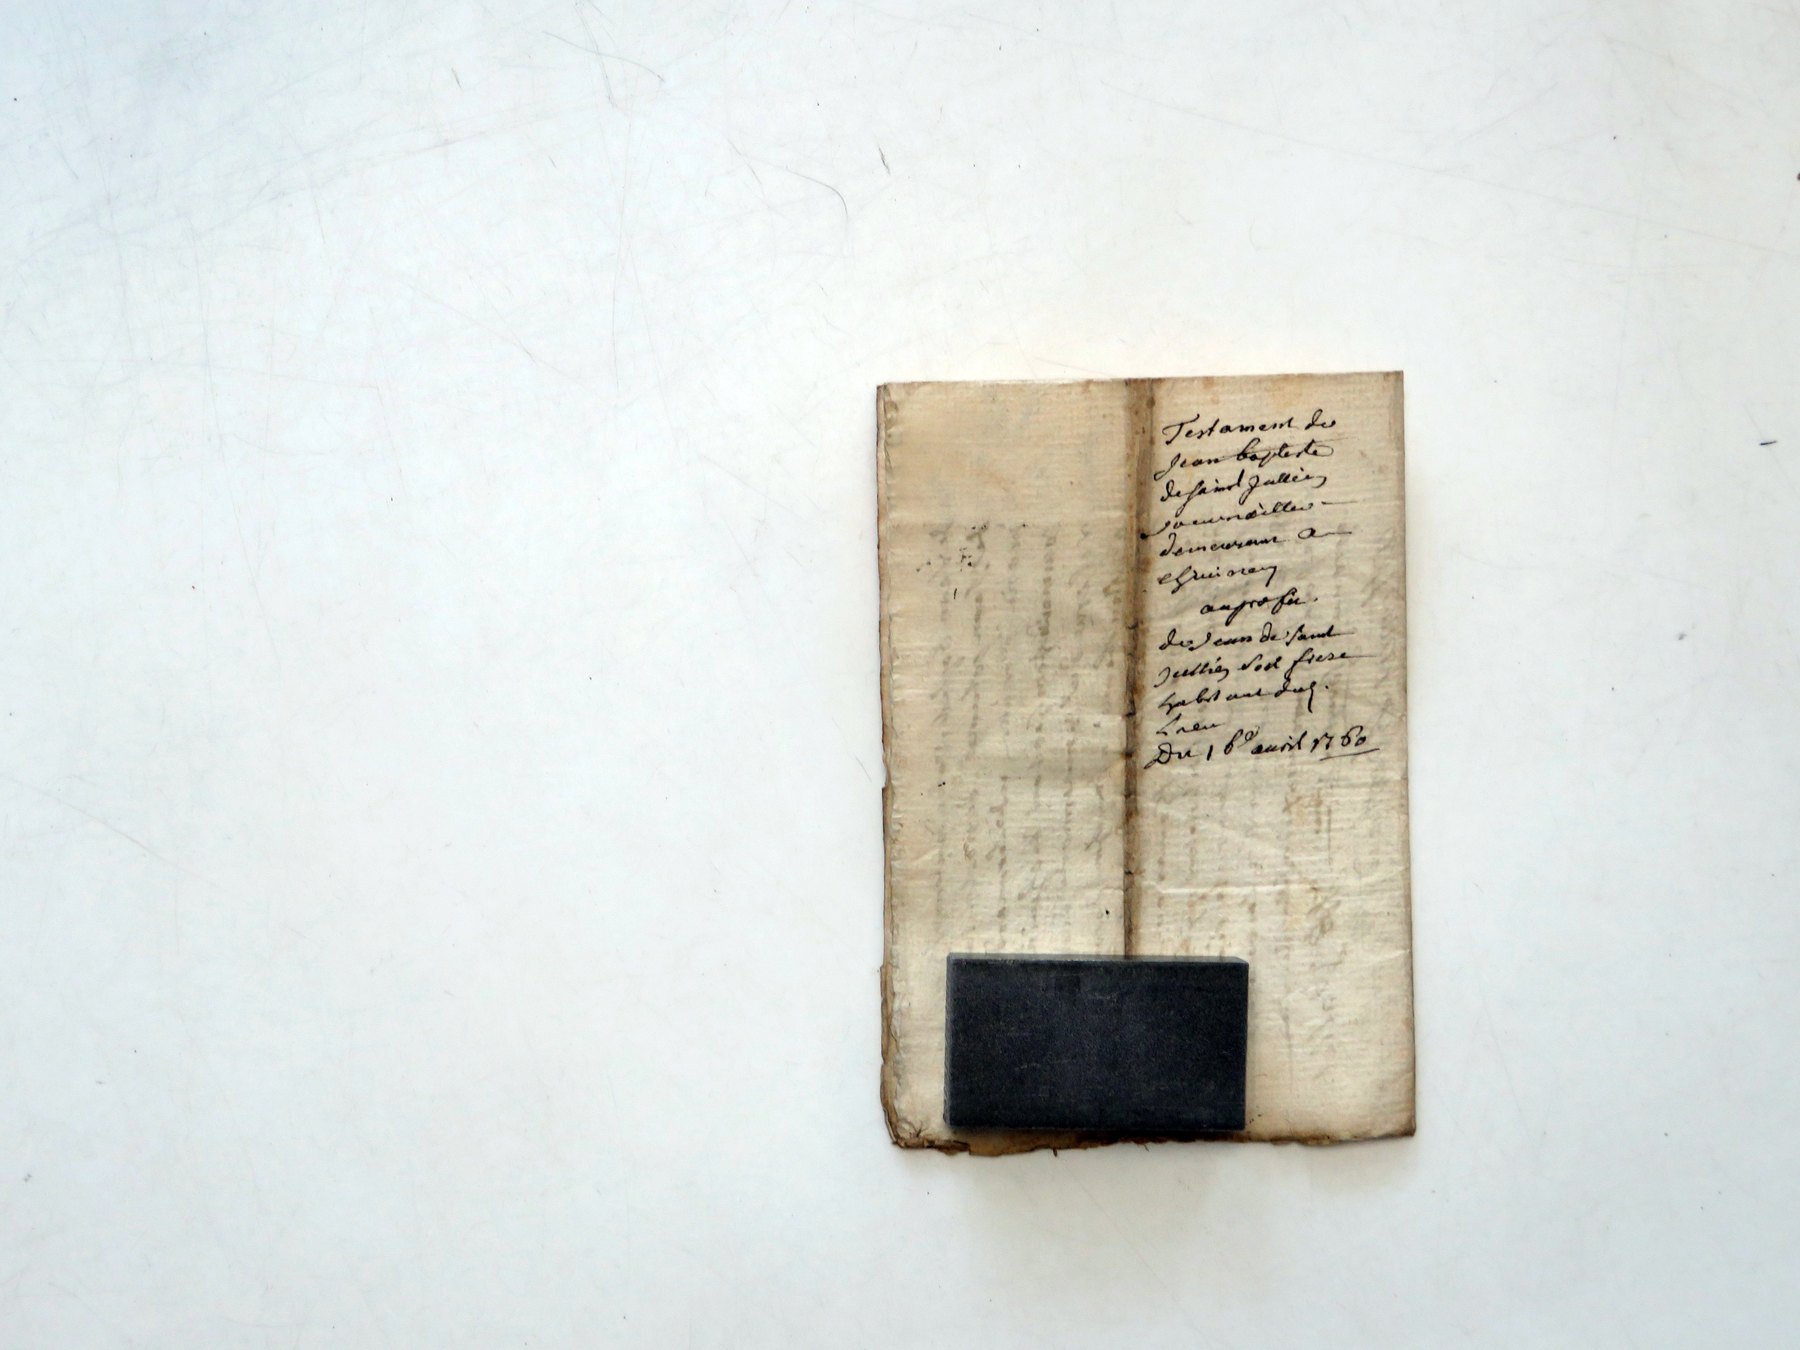 Testament de
Jean baptiste
de saint Jullien
travailleur
demeurant a
au profit
de Jean de saint
Jullien son frere
habitant dud.
Lieu
Du 16e avril 1760